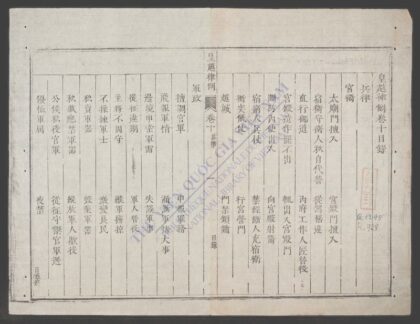 皇越律例卷十目錄
兵律
宮衛
太廟門擅入　宮殿門擅入
宿衛守衛人私自代替　從駕稽違
直行御道　內府工作人匠替役
宮殿造作罷不出　輒出入宮殿門
關防內使出入　向宮殿射箭
宿衛人兵仗　禁經斷人充宿衛
衝突儀仗　行宮營門
越城　門禁鎖鑰
皇越律例　卷十　兵律　目錄
軍政
擅調官軍　申報軍務
飛報軍情　漏泄軍情大事
邊境申索軍需　失誤軍事
從征違期　軍人替役
主將不固守　縱軍擄掠
不操練軍士　激變良民
私賣軍器　毀棄軍器
私藏應禁軍器　縱放軍人歇役
公侯私役官軍　從征守禦官軍逃
優恤軍屬　夜禁
THƯ VIỆN QUỐC GIA VIỆT NAM
NATIONAL LIBRARY OF VIETNAM